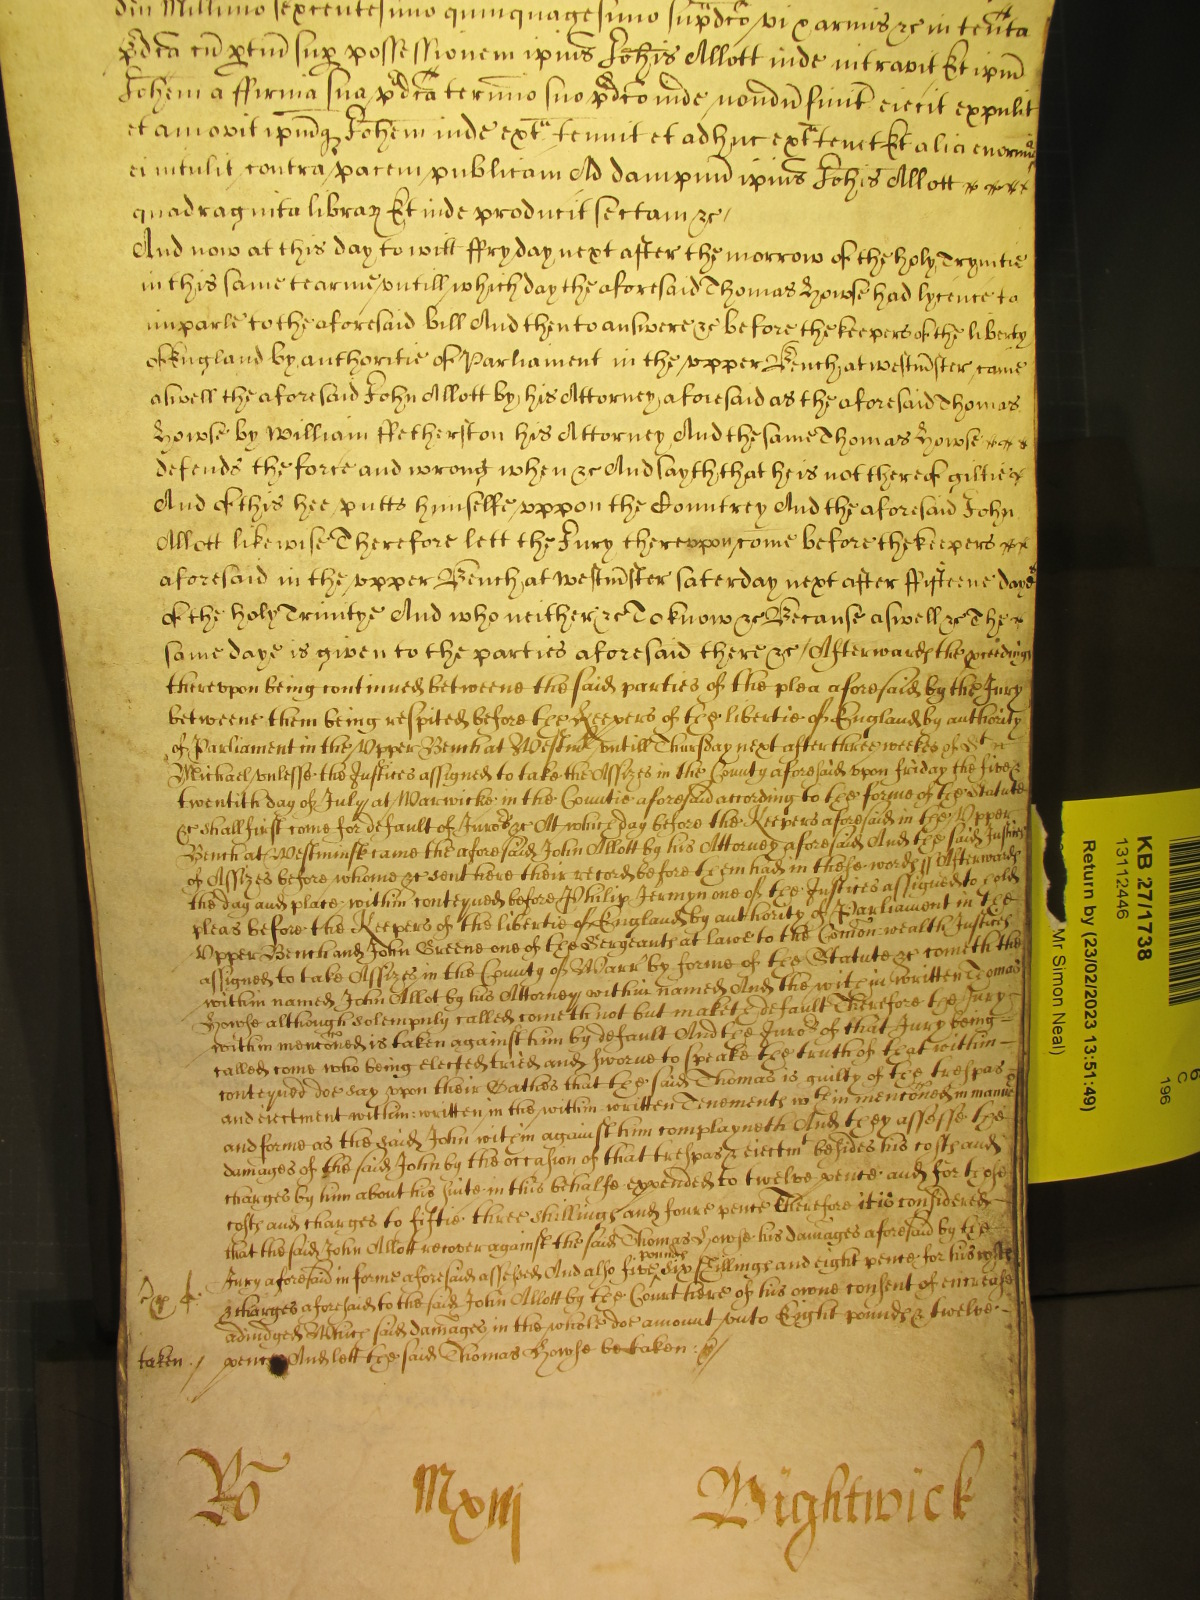 dm Millimo sexcentesimo quinquagesimo sup̄dc̄o vi & armis &c in ten̄ta
p̄dc̄a cū ptin̄ sup possessionem ip̄ius Joh̄is Allott inde intravit Et ip̄m
Joh̄em a ffirma sua p̄dc̄a termino suo p̄dc̄o inde nondū finit̄ eiecit expulit
et amovit ip̄mq Joh̄em inde extᵃ tenuit et adhuc extᵃ tenet Et alia enormia
ei intulit contra pacem publicam Ad dampnū ip̄ius Joh̄is Allott
quadraginta librar̄ Et inde producit sectam &c /
And now at this day to witt ffryday next after the morrow of the holy Trynitie
in this same tearme untill which day the aforesaid Thomas Howse had lycence to
imparle to the aforesaid bill And then to answere &c before the keepers of the liberty
of England by authoritie of Parliament in the upper Bench at Westm̄ster came
aswell the aforesaid John Allott by his Attorney aforesaid as the aforesaid Thomas
Howse by William ffetherston his Attorney And the same Thomas Howse
defends the force and wrong when &c And sayth that he is not thereof giltie
And of this hee putts himselfe uppon the Countrey And the aforesaid John
Allott likewise Therefore lett the Jury thereupon come before the keepers
aforesaid in the upper Bench at Westm̄ster saterday next after ffifteene dayes
of the holy Trinitye And who neither &c To know &c Because aswell &c The
same daye is given to the parties aforesaid there &c / Afterwards the p̄ceedings
thereupon being continued betweene the said parties of the plea aforesaid by the Jury
betweene them being respited before the Keepers of the libertie of England by authority
of Parliament in the Upper Bench at Westm̄ untill Thursday next after three weekes of St
Michael unlesse the Justices assigned to take the Assizes in the County aforesaid upon friday the five &
twentith day of July at Warwicke in the Countie aforesaid according to the forme of the Statute
&c shall first come for default of Juroͬs &c At which day before the Keepers aforesaid in the Upper
Bench at Westminst̄ came the aforesaid John Allott by his Attorney aforesaid And the said Justices
of Assizes before whome &c sent here their record before them had in these words // Afterwards
the day and place within conteyned before Philip Jermyn one of the Justices assigned to hold
pleas before the Keepers of the libertie of England by authority of Parliament in the
Upper Bench and John Greene one of the Sergeants at lawe to the Com̄on wealth Justices
assigned to take Assizes in the County of Warr̄ by forme of the Statute &c cometh the
within named John Allot by his Attorney within named And the within written Thomas
Howse although solempnly called cometh not but maketh default Therefore the Jury
within menc̄oned is taken against him by default And the Juroͬs of that Jury being
called come who being elected tried and sworne to speake the truth of that within
conteyned doe say upon their Oathes that the said Thomas is guilty of the trespas
and eiectment within written in the within written Tenements within menc̄oned in manner
and forme as the said John within against him complayneth And they assesse the
damages of the said John by the occasion of that trespas & eiectmᵗ besides his costs and
charges by him about his suite in this behalfe expended to twelve pence and for those
costs and charges to fiftie three shillings and foure pence Therefore it is considered
that the said John Allott recover against the said Thomas Howse his damages aforesaid by the
Jury aforesaid in forme aforesaid assessed And also five pounds six shillings and eight pence for his costs
& charges aforesaid to the said John Allott by the Court here of his owne consent of encrease
adiudged Which said damages in the whole doe amount unto Eight pounds & twelve
taken / pence And lett the said Thomas Howse be taken : &c /
Ro Mxiij Wightwick
KB 27/1738
13112446
Return by (23/02/2023 13:51:49)
Mr Simon Neal)
6
C
196